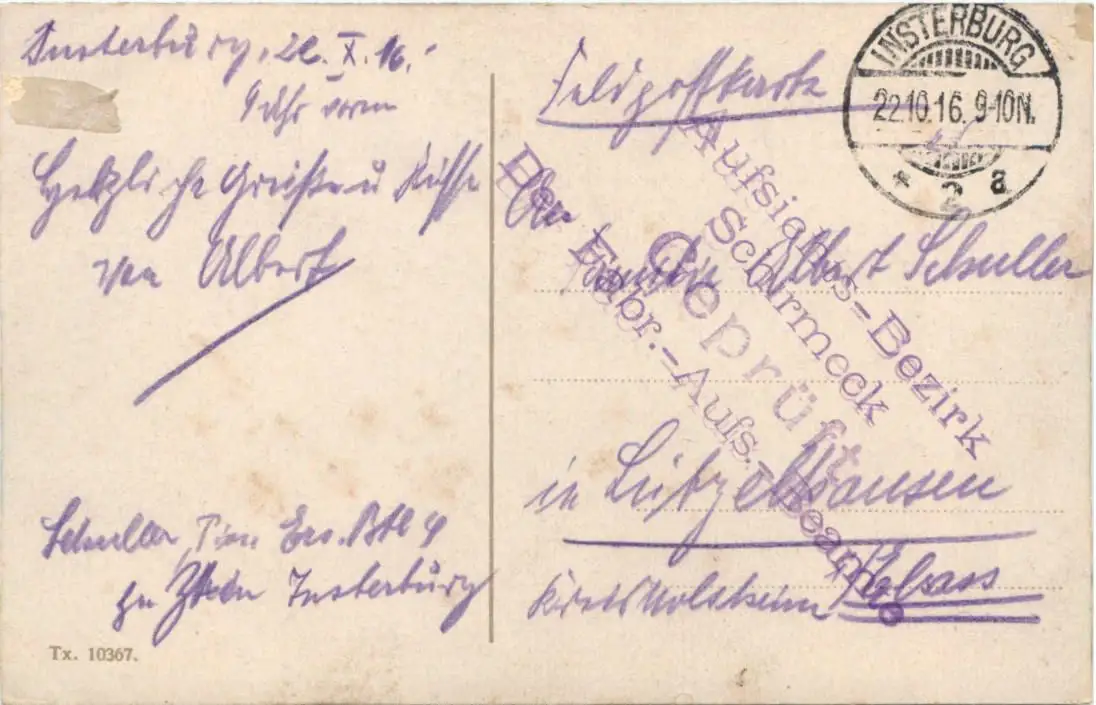 Insterburg, 22. X. 16.
9 Uhr vorm
Herzliche Grüße u Küsse
von Albert
Schuller, Pion Ers. Btl
Insterburg
Tx. 10367.
Feldpostkarte
INSTERBURG
22.10.16. 9-10N.
* 2 a
An
Familie Albert Schuller
in Lützelhausen
Kreis Molsheim / Elsass
Aufsichts-Bezirk
Schirmeck
Geprüft
Der Fabr.-Aufs.-Beamte